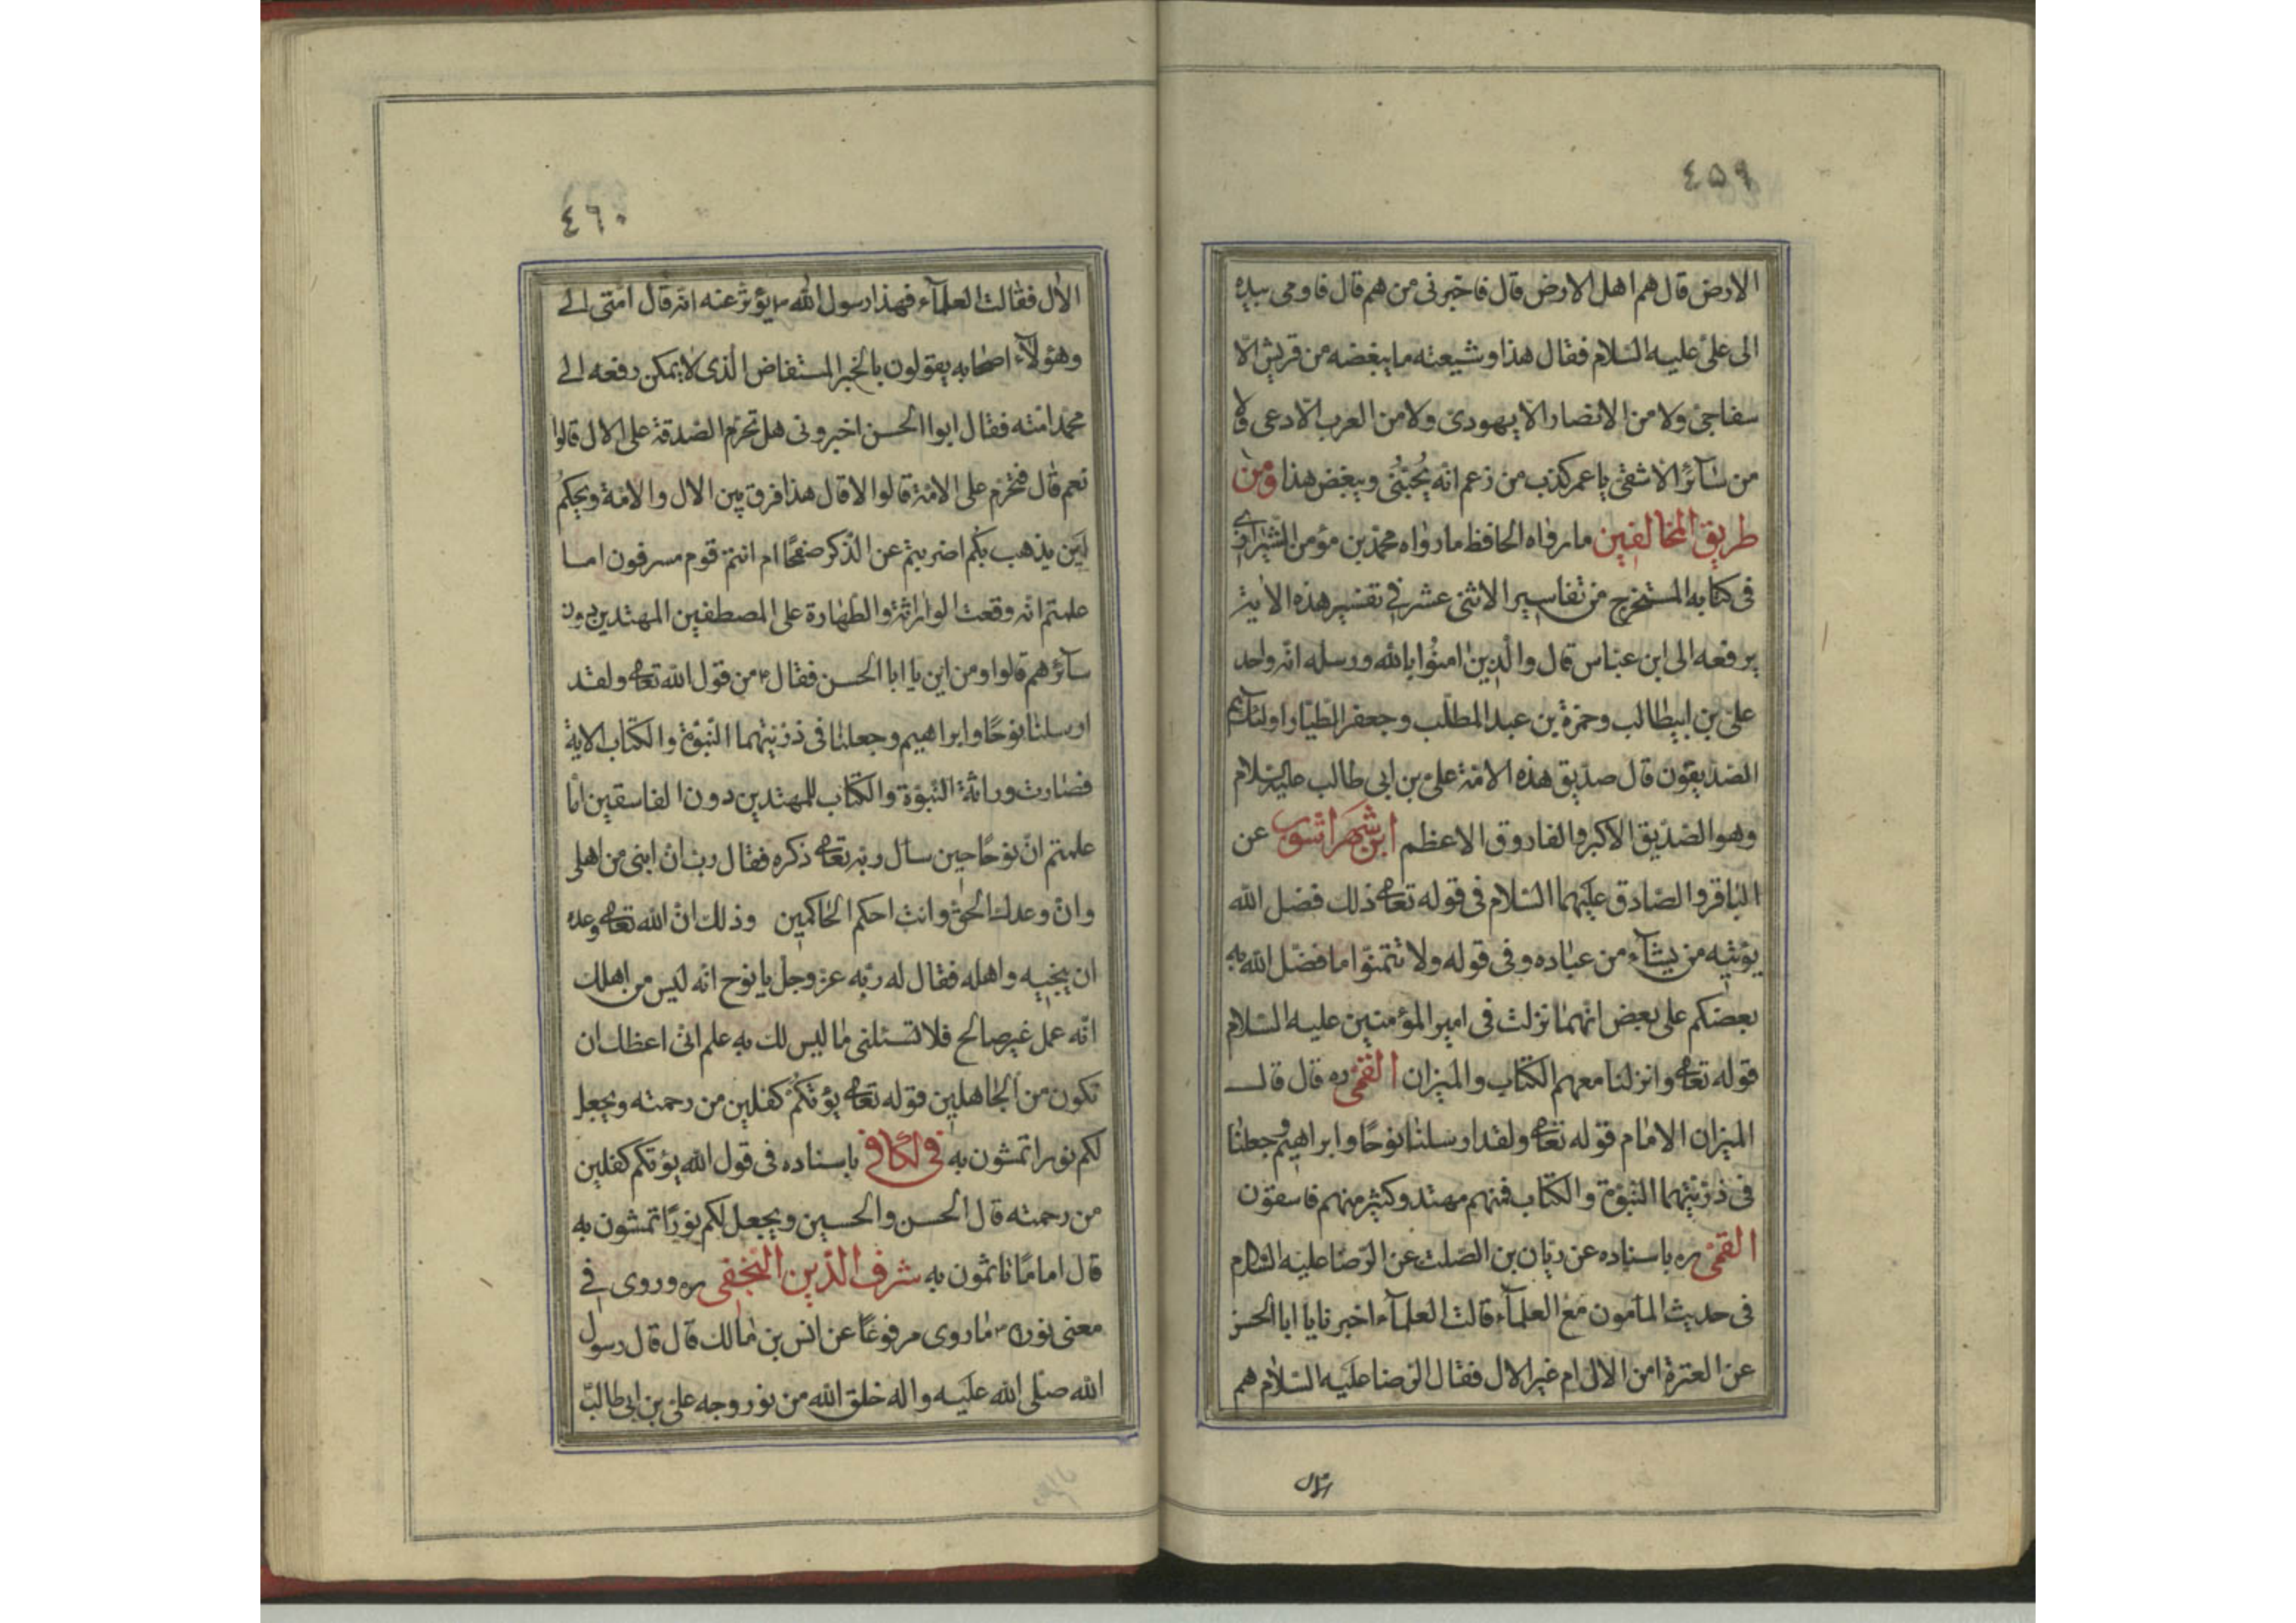 ٤٥٩
الارض قال هم اهل الارض قال فاخبرنى من هم قال فاومى بيده
الى علىّ عليه السّلام فقال هذا وشيعته ما يبغضه من قريش الّا
سفاحىّ ولا من الانصار الّا يهودىّ ولا من العرب الّا دعى ولا
من سآئر الّا شقىّ يا عمر كذب من زعم انّه يُحبّنى ويبغض هذا ومن
طريق المخالفين ما رواه الحافظ ما رواه محمّد بن مؤمن الشيرازى
فى كتابه المستخرج من تفاسير الاثنى عشر فى تفسير هذه الاية
يرفعه الى ابن عبّاس قال والّذين امنُوا بالله ورسله انّه واحد
علىّ بن ابيطالب وحمزة بن عبد المطلّب وجعفر الطيّار اولئك هم
الصّديقون قال صدّيق هذه الامّة علىّ بن ابى طالب عليه السّلام
وهو الصّدّيق الاكبر والفاروق الاعظم ابن شهراشوب عن
الباقر والصّادق عليهما السّلام فى قوله تعالى ذلك فضل الله
يؤتيه من يشآء من عباده وفى قوله ولا تتمنّوا ما فضّل الله به
بعضكم على بعض انّهما نزلت فى امير المؤمنين عليه السّلام
قوله تعالى وانزلنا معهم الكتاب والميزان القمّى ره قال قال
الميزان الامام قوله تعالى ولقد ارسلنا نوحًا وابراهيم وجعلنا
فى ذرّيّتهما النّبوّة والكتاب فمنهم مهتد وكثير منهم فاسقون
القمّى ره باسناده عن ريّان بن الصّلت عن الرّضا عليه السّلام
فى حديث المأمون مع العلمآء قالت العلمآء اخبرنا يا ابا الحسن
عن العترة امن الال ام غير الال فقال الرّضا عليه السّلام هم
الال
٤٦٠
الأل فقالت العلمآء فهذا رسول الله ص يؤثر عنه انّه قال امّتى الى
وهؤلآء اصحابه يقولون بالخبر المستفاض الّذى لا يمكن دفعه الى
محمّد امّته فقال ابوا الحسن اخبرونى هل تحرم الصّدقة على الال قالوا
نعم قال فتحرم على الامّة قالوا لا قال هذا فرق بين الال والامّة ويحكم
اين يذهب بكم اضربتم عن الذّكر صفحًا ام انتم قوم مسرفون اما
علمتم انّه وقعت الوراثة والطّهارة على المصطفين المهتدين دون
سآئرهم قالوا ومن اين يا ابا الحسن فقال ع من قول الله تعالى ولقد
ارسلنا نوحًا وابراهيم وجعلنا فى ذرّيّتهما النّبوّة والكتاب الاية
فصارت وراثة النّبوّة والكتاب للمهتدين دون الفاسقين اما
علمتم انّ نوحًا حين سأل ربّه تعالى ذكره فقال ربّ انّ ابنى من اهلى
وانّ وعدك الحقّ وانت احكم الحاكمين وذلك انّ الله تعالى وعده
ان ينجيه واهله فقال له ربّه عزّ وجلّ يا نوح انّه ليس من اهلك
انّه عمل غير صالح فلا تسئلنى ما ليس لك به علم انّى اعظك ان
تكون من الجاهلين قوله تعالى يؤتكم كفلين من رحمته ويجعل
لكم نورا تمشون به فى الكافى باسناده فى قول الله يؤتكم كفلين
من رحمته قال الحسن والحسين ويجعل لكم نورًا تمشون به
قال امامًا تأتمّون به شرف الدّين النّجفى ره وروى فى
معنى نوره ما روى مرفوعًا عن انس بن مالك قال قال رسول
الله صلّى الله عليه واله خلق الله من نور وجه علىّ بن ابى طالب